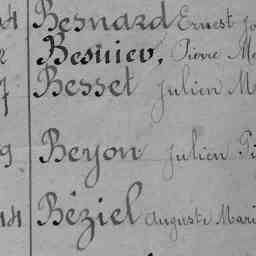 Besnard Ernest
Besnier, Pierre
Besset Julien M
9 Beyon Julien
14 Béziel Auguste Mari